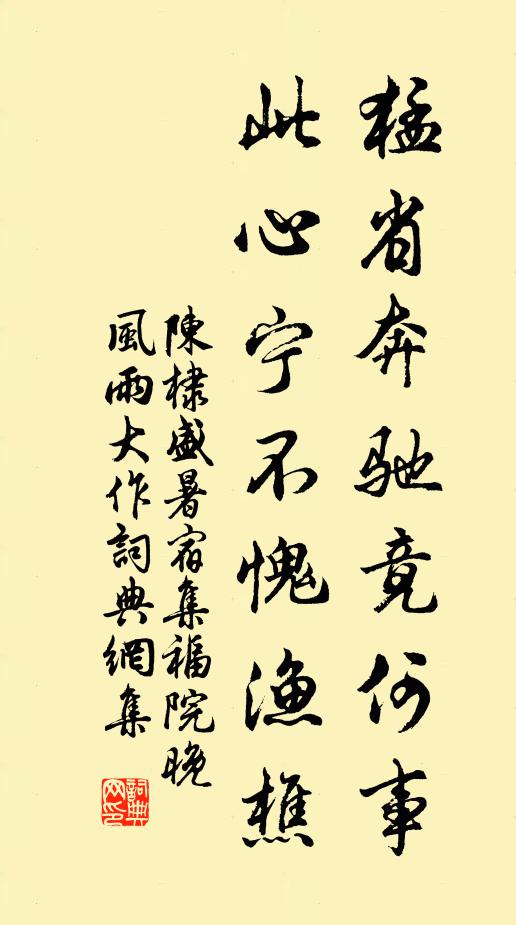 猛省奔驰竟何事
此心宁不愧渔樵
陳棣盛暑宿集福院晚
風雨大作詞典網集
詞典
网印